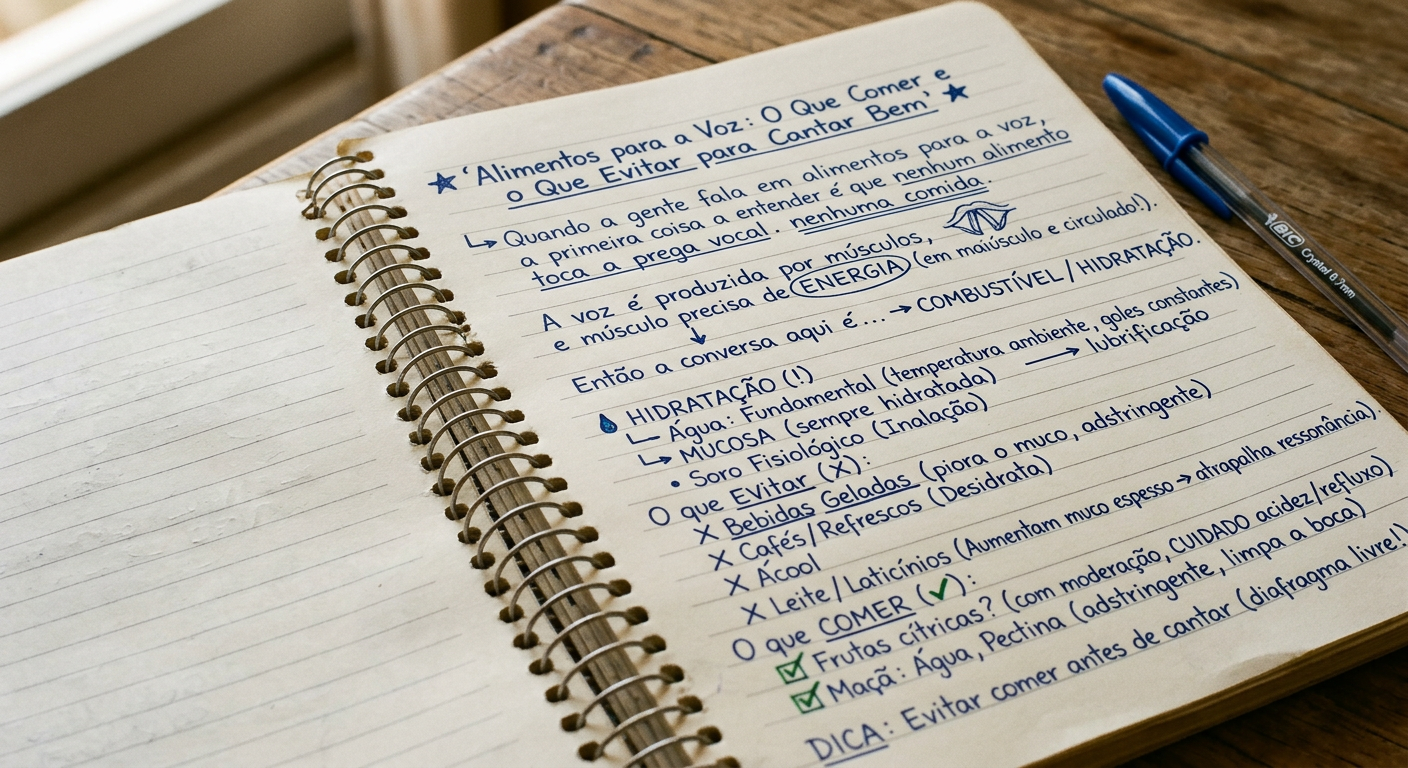 ★ 'Alimentos para a Voz: O Que Comer e
o Que Evitar para Cantar Bem' ★
↳ Quando a gente fala em alimentos para a voz,
a primeira coisa a entender é que nenhum alimento
toca a prega vocal. nenhuma comida.
A voz é produzida por músculos,
e músculo precisa de ENERGIA (em maiúsculo e circulado!).
Então a conversa aqui é... → COMBUSTÍVEL / HIDRATAÇÃO.
HIDRATAÇÃO (!)
Água: Fundamental (temperatura ambiente, goles constantes)
↳ MUCOSA (sempre hidratada) → lubrificação
• Soro Fisiológico (Inalação)
O que Evitar (X):
X Bebidas Geladas (piora o muco, adstringente)
X Cafés/Refrescos (Desidrata)
X Ácool
X Leite/Laticínios (Aumentam muco espesso → atrapalha ressonância).
O que COMER (✓):
☑ Frutas cítricas? (com moderação, CUIDADO acidez/refluxo)
☑ Maçã: Água, Pectina (adstringente, limpa a boca)
DICA: Evitar comer antes de cantar (diafragma livre!)
BIC Cristal 0.7mm